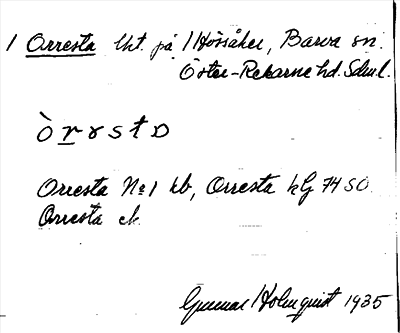 1 Orresta lht. på 1 Hössåker, Barva sn.
Öster-Rekarne hd. Sdml.
òrɤstɒ
Orresta No 1 hb, Orresta kG 74 SO.
Orresta ek.
Gunnar Holmquist 1935